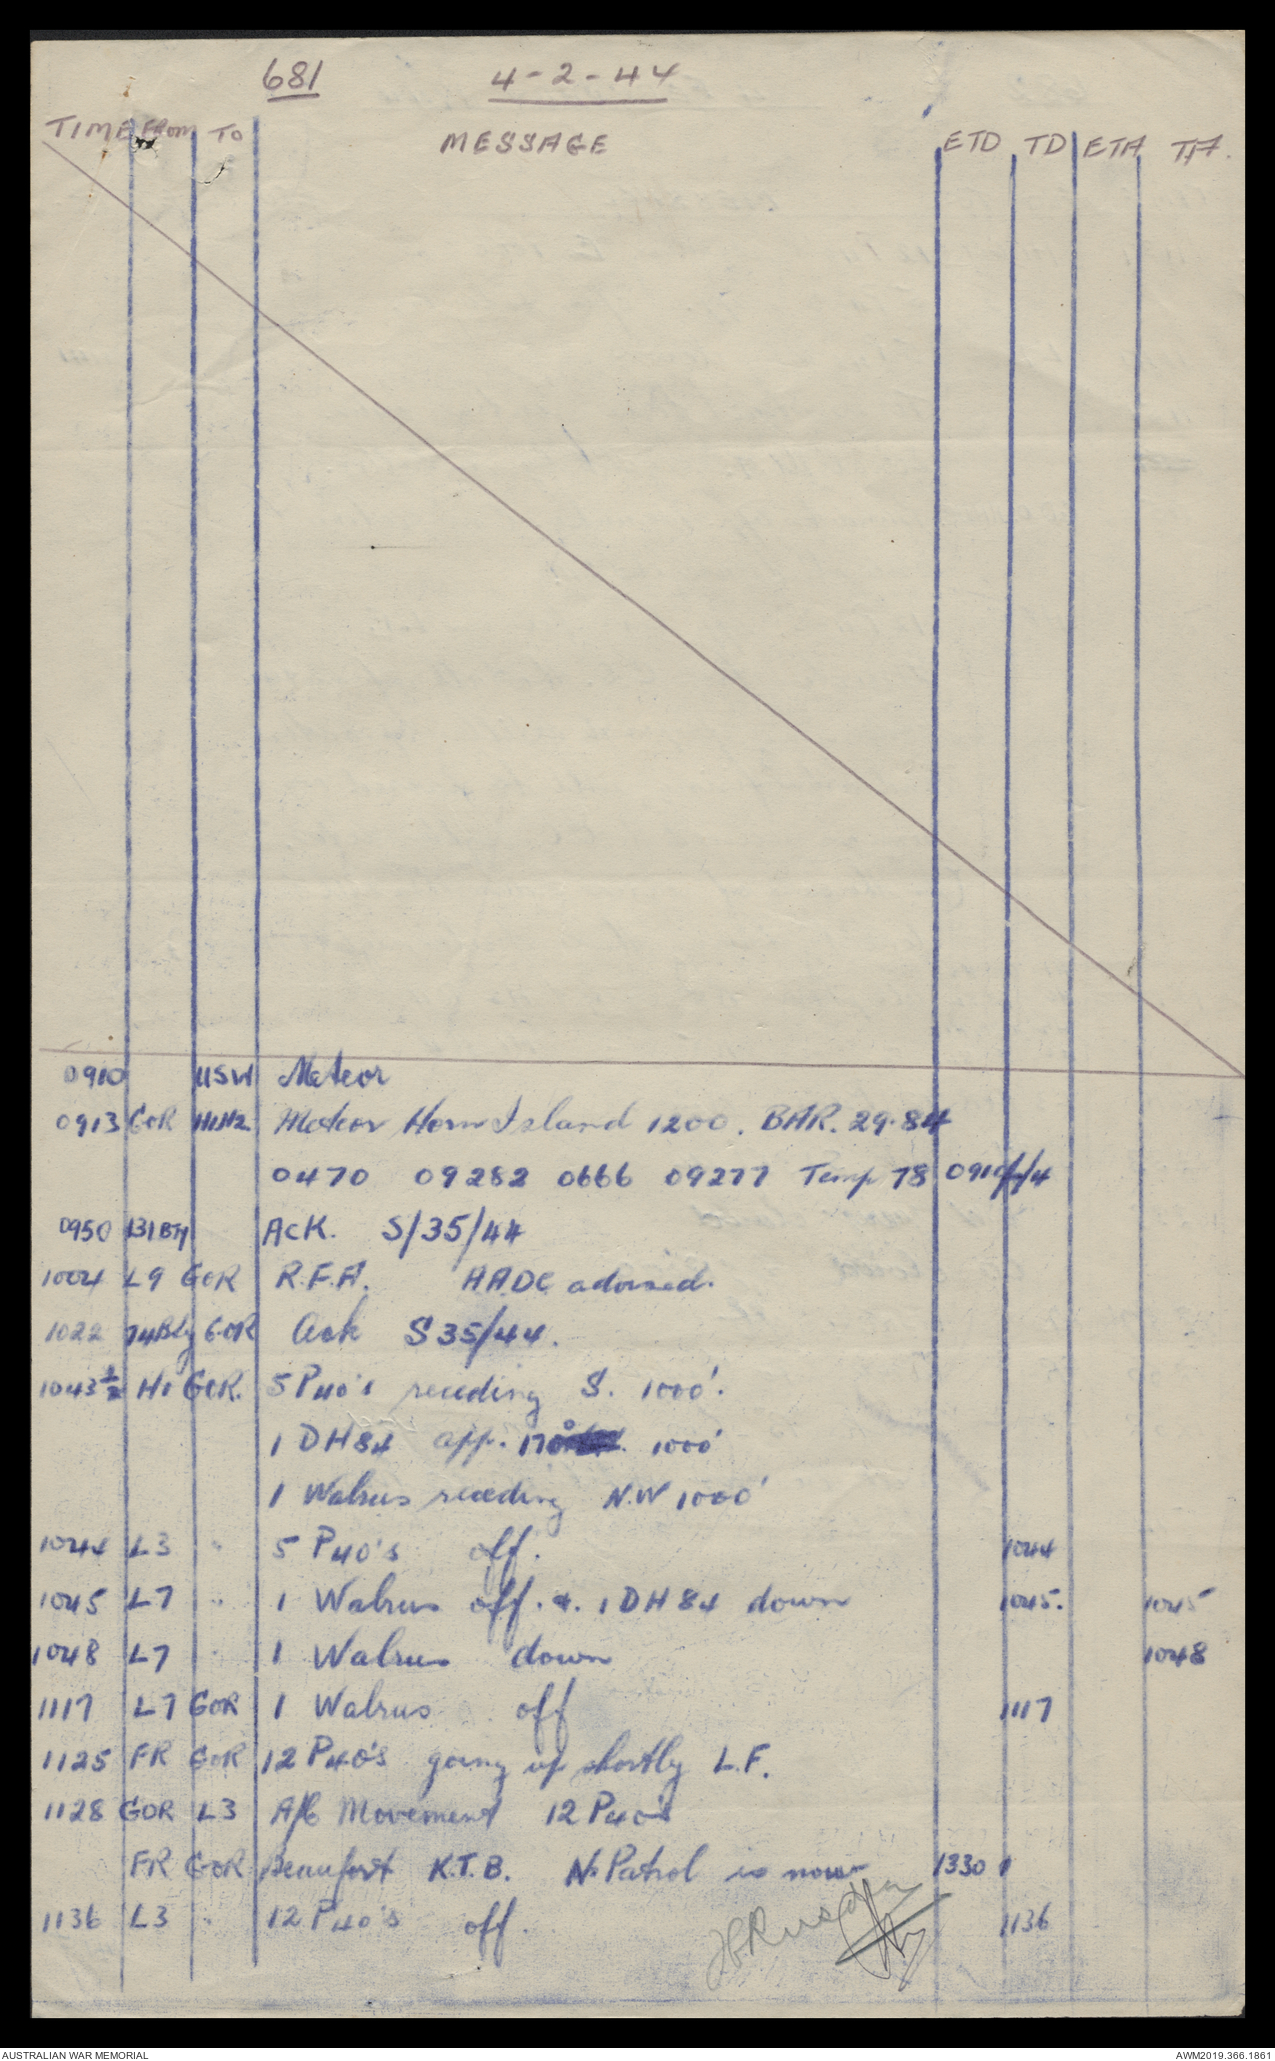 681 4-2-44
TIME FROM TO MESSAGE ETD TD ETA TA
0910 USW Meteor
0913 GOR H1H2 Meteor Horn Island 1200. BAR. 29.84
0470 09282 0666 09277 Temp 78
0950 131 BTY ACK. S/35/44
1004 L9 GOR R.F.A. AADC advised.
1022 74 Bty GOR Ack S35/44.
1043½ H1 GOR. 5 P40's receding S. 1000'.
1 DH84 app. 170° 1000'
1 Walrus receding N.W 1000'
1044 L3 " 5 P40's off. 1044
1045 L7 " 1 Walrus off. &. 1 DH84 down 1045. 1045
1048 L7 " 1 Walrus down 1048
1117 L7 GOR 1 Walrus off 1117
1125 FR GOR 12 P40's going up shortly L.F.
1128 GOR L3 A/C Movement 12 P40's
FR GOR Beaufort K.T.B. N Patrol is now 1330
1136 L3 " 12 P40's off. 1136
AUSTRALIAN WAR MEMORIAL AWM2019.366.1861